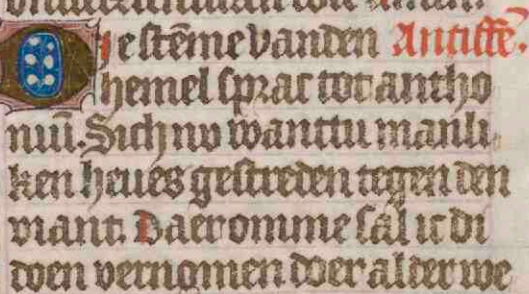 Die stēme vanden Antiffē.
hemel sprac tot antho
niū. Sich nv wanttu manli
ken heues gestreden tegen den
viant. Daeromme sal ic di
doen vernomen doer alder we